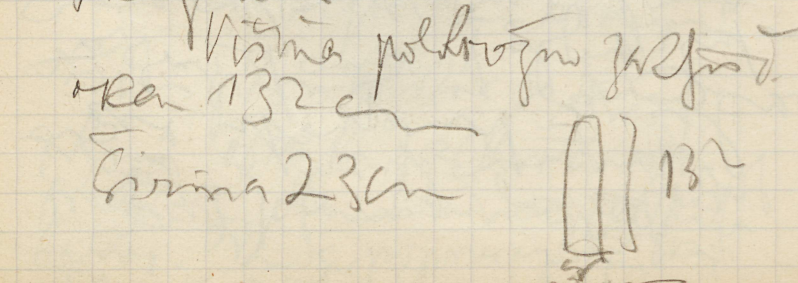 Višina polkrožno zaključ.
oken 132 cm
Širina 23 cm
132